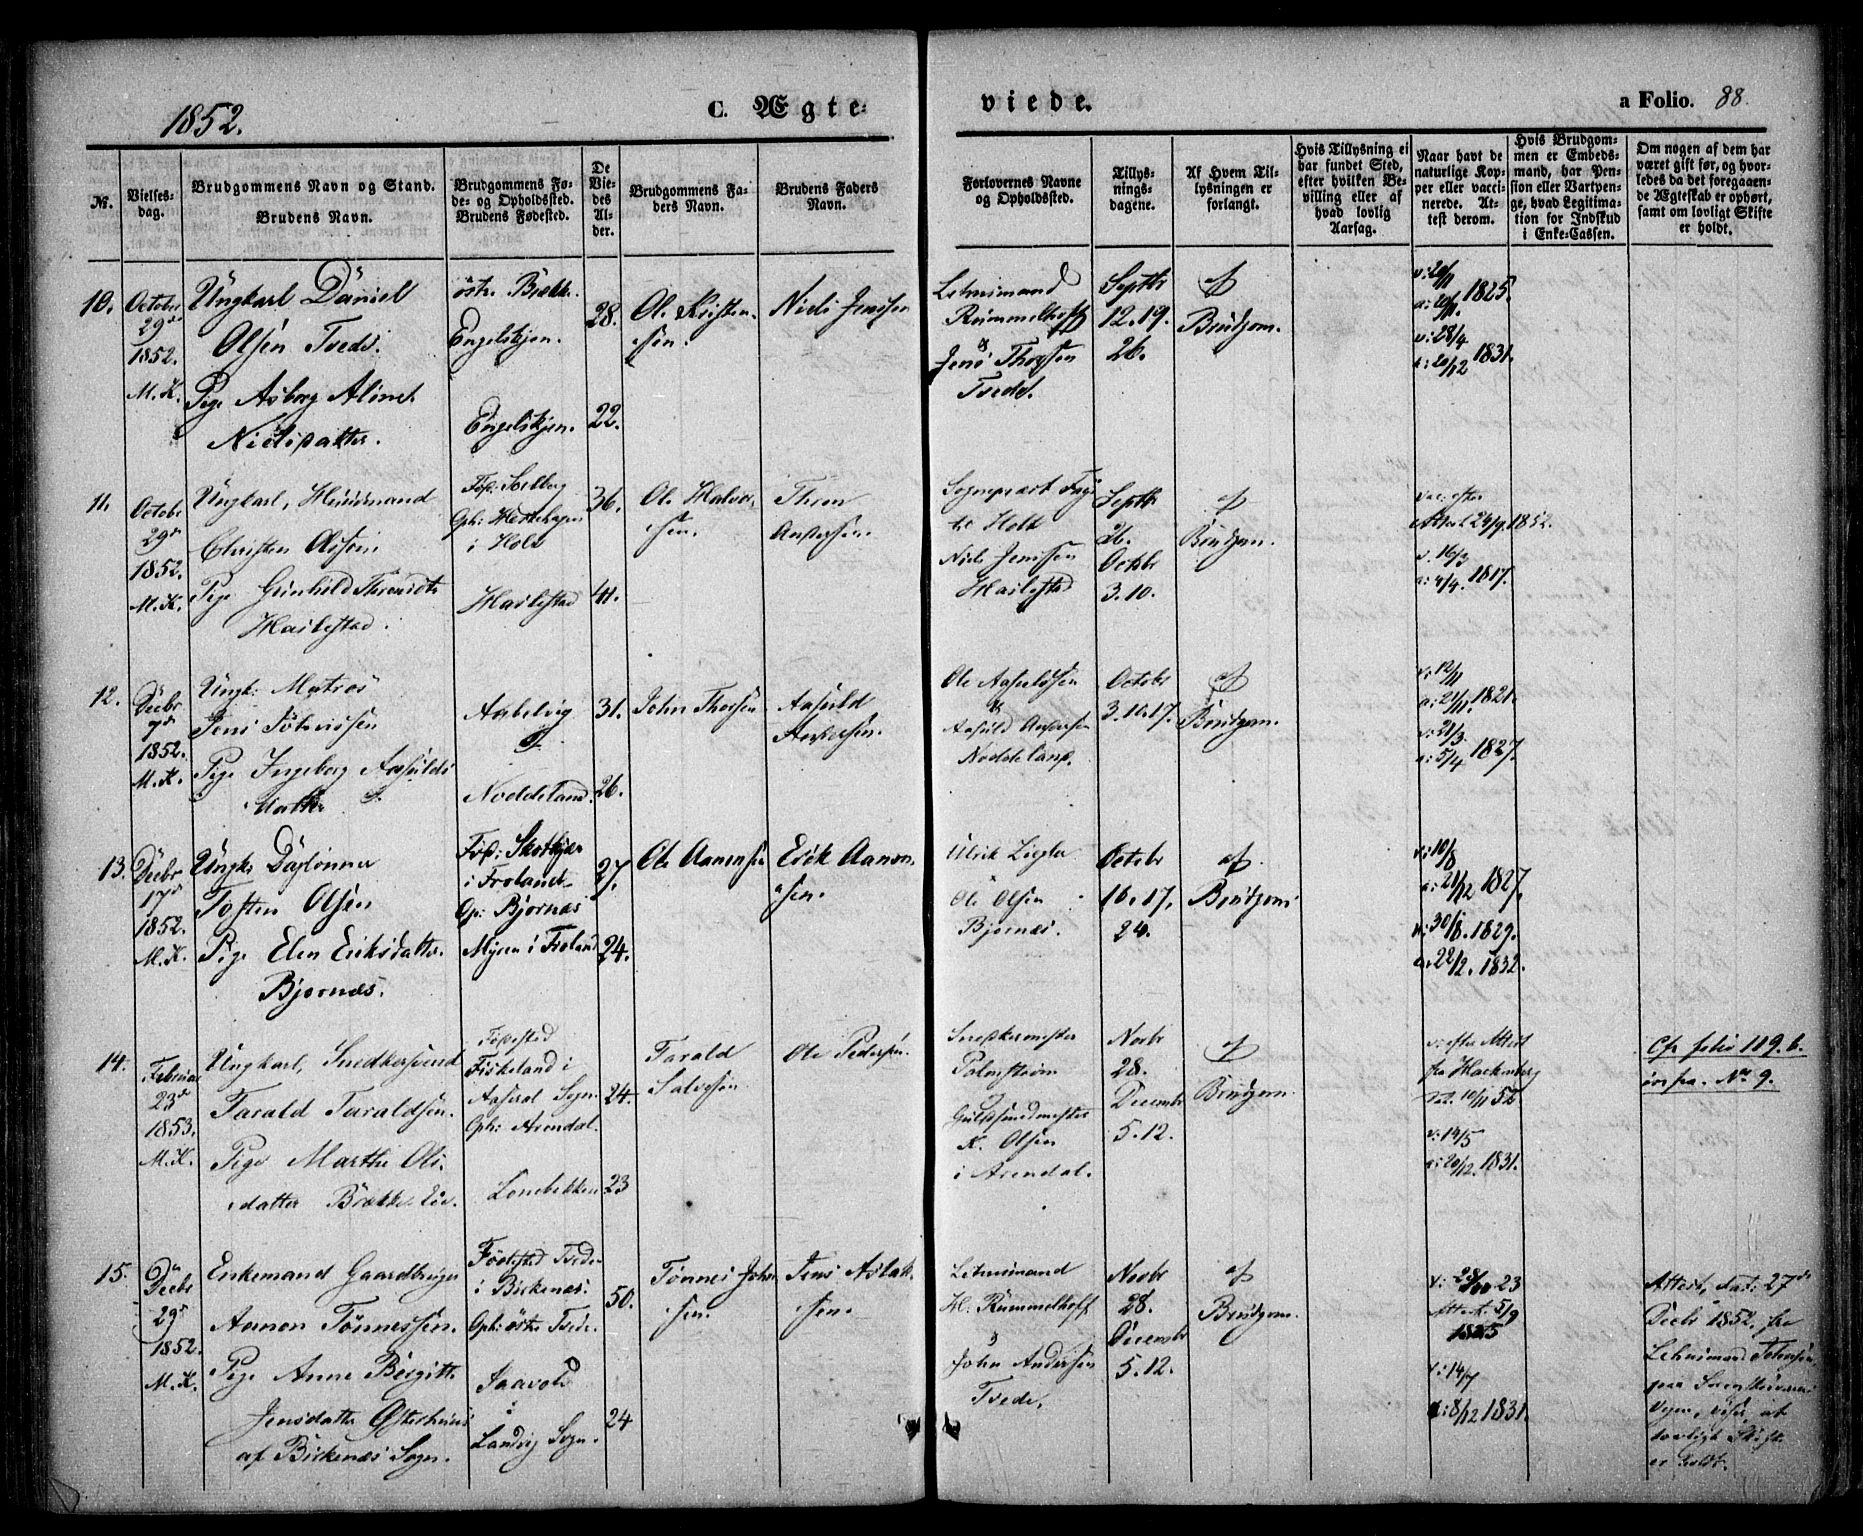 1852.
C. Ægte-
viede.
a Folio. 88.
No.
Vielses-
dag.
Brudgommens Navn og Stand.
Brudens Navn.
Brudgommens Fø-
de- og Opholdssted.
Brudens Fødested.
De
Vie-
des
Al-
der.
Brudgommens Fa-
ders Navn.
Brudens Faders
Navn.
Forlovernes Navne
og Opholdssted.
Tillys-
nings-
dagene.
Af Hvem Til-
lysningen er
forlangt.
Hvis Tillysning ei
har fundet Sted,
efter hvilken Be-
villing eller af
hvad lovlig
Aarsag.
Naar havt de
naturlige Kop-
per eller vacci-
nerede. At-
test derom.
Hvis Brudgom-
men er Embeds-
mand, har Pen-
sion eller Vartpen-
ge, hvad Legitima-
tion for Indskud
i Enke-Cassen.
Om nogen af dem har
været gift før, og hvor-
ledes da det foregaaen-
de Ægteskab er ophørt,
samt om lovligt Skifte
er holdt.
10.
October
29de
1852.
M. K.
Ungkarl Daniel
Olsen Tvede.
Pige Asborg Aline
Nielsdatter.
östre Brække
Engelskjøn.
Engelskjøn.
28.
22.
Ole Kristen-
sen.
Niels Jenssen
Lehnsmand
Rummelhoff
&
Jens Thorsen
Tvede.
Septbr
12. 19.
26.
af
Brudgom.
v: 20/11
a: 20/11. 1825.
v: 28/4
a: 20/12 1831.
11.
October
29de
1852.
M. K.
Ungkarl, Huusmand
Christen Olsen
Pige Gunhild Throndsdtr
Hailestad.
Fød: Solberg
Oph: Hestehagen
i Holt
Hailestad
36.
41.
Ole Halvor-
sen.
Thron
Andersen.
Sogneprest Faye
til Holt
Niels Jenssen
Hailestad
Septbr
26.
Octobr
3. 10.
af
Brudgom.
vac: efter
Attest 24/9. 1852.
v. 16/3
a: 4/4. 1817.
12.
Decbr
7de
1852.
M. K.
Ungk: Matros
Jens Johnsen
Pige Ingeborg Aasulds-
datter
Aabelvig
Noddeland.
31.
26.
John Thorsen
Aasuld
Andersen.
Ole Aasuldsen
&
Aasuld Andersen
Noddeland.
October
3. 10. 17.
af
Brudgom.
v: 12/11
a: 21/11. 1821.
v: 21/3
a: 5/4 1827.
13.
Decbr
17de
1852.
M. K.
Ungk: Dagslønner
Tosten Olsen
Pige Elen Eriksdatter
Bjornæs.
i Froland
Op: Bjornæs
Myren i Froland
27.
24.
Ole Aanonsen
Erik Aanon-
sen.
Ulrik Zigler
Ole Olsen
Bjornæs.
Octobr
10. 17.
24.
af
Brudgom
v: 10/8
a: 21/12 1827.
v: 30/8. 1829.
a: 22/2. 1832.
14.
Februar
23de
1853.
M. K.
Ungkarl, Snedkersvend
Tarald Taraldsen.
Pige Marthe Ols-
datter Brække Eie.
Fødested
Fiskeland i
Aaserál Sogn.
Oph: Arendal.
Lonebekken
24.
23
Tarald
Salvesen
Ole Pedersen.
Snedkermester
Palmstrøm
&
Guldsmedmester
K. Olsen
i Arendal.
Novbr
28.
Decembr
5. 12.
af
Brudgom
v: efter Attest
fra Hackenberg
dat. 10/11 52.
v: 14/5
a: 20/12. 1831.
Cfr folio 119. b.
ovfra. No 9.
15.
Decbr
29de
1852.
M. K.
Enkemand Gaardbruger
Aanon Tønnessen.
Pige Anne Birgitte
Jensdatter Østerhuus
af Birkenæs Sogn.
Fødested Tvede
i Birkenæs.
Oph: östre Tvede.
Saavold
i
Landvig Sogn.
50.
24
Tønnes John-
sen.
Jens Aslak-
sen.
Lehnsmand
H. Rummelhoff
&
John Andersen
Tvede.
Novbr
28.
Decembr
5. 12.
af
Brudgom.
v: 28/10 23
Attest. 5/9
1825
v: 14/7
a: 8/12 1831.
Attest, dat: 27de
Decbr 1852. fra
Lehnsmand Johnsen,
paa
viser, at
lovligt Skifte
er holdt.